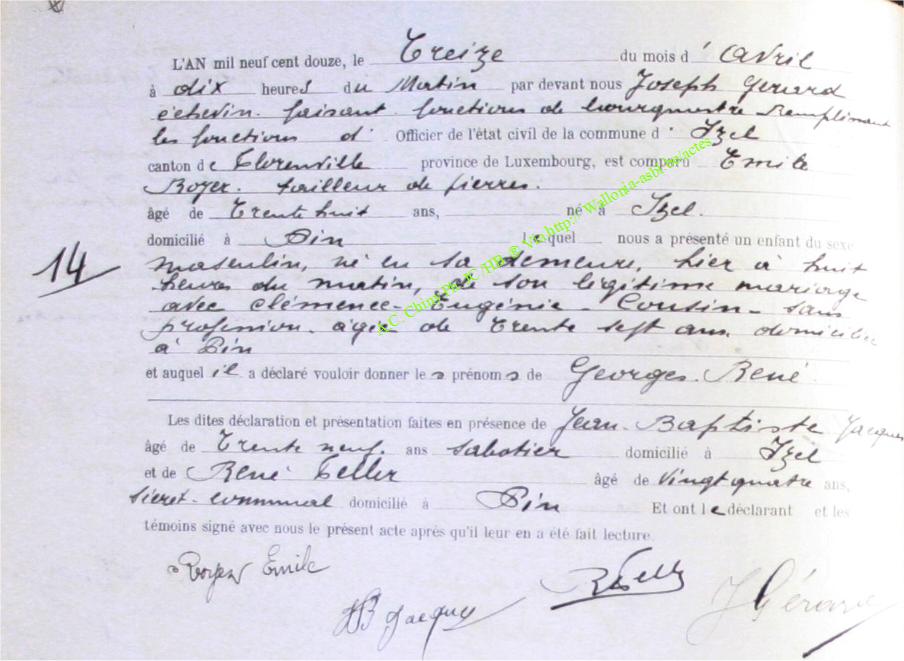 L'AN mil neuf cent douze, le Treize du mois d' Avril
à dix heures du Matin par devant nous Joseph Gerard
échevin faisant fonctions de bourgmestre Remplissant
les fonctions d' Officier de l'état civil de la commune d' Izel
canton de Florenville province de Luxembourg, est comparu Emile
Royer. tailleur de pierres.
âgé de Trente huit ans, né à Izel.
domicilié à Pin lequel nous a présenté un enfant du sexe
14
masculin, né en sa demeure, hier à huit
heures du matin, de son légitime mariage
avec Clémence Eugénie Cousin sans
profession âgée de Trente sept ans domiciliée
à Pin
et auquel il a déclaré vouloir donner les prénoms de Georges René.
Les dites déclaration et présentation faites en présence de Jean Baptiste Jacques
âgé de Trente neuf. ans sabotier domicilié à Izel
et de René Feller âgé de vingt quatre ans,
secret. communal domicilié à Pin Et ont le déclarant et les
témoins signé avec nous le présent acte après qu'il leur en a été fait lecture.
Royer Emile
JB Jacques
RFeller
J Gérard